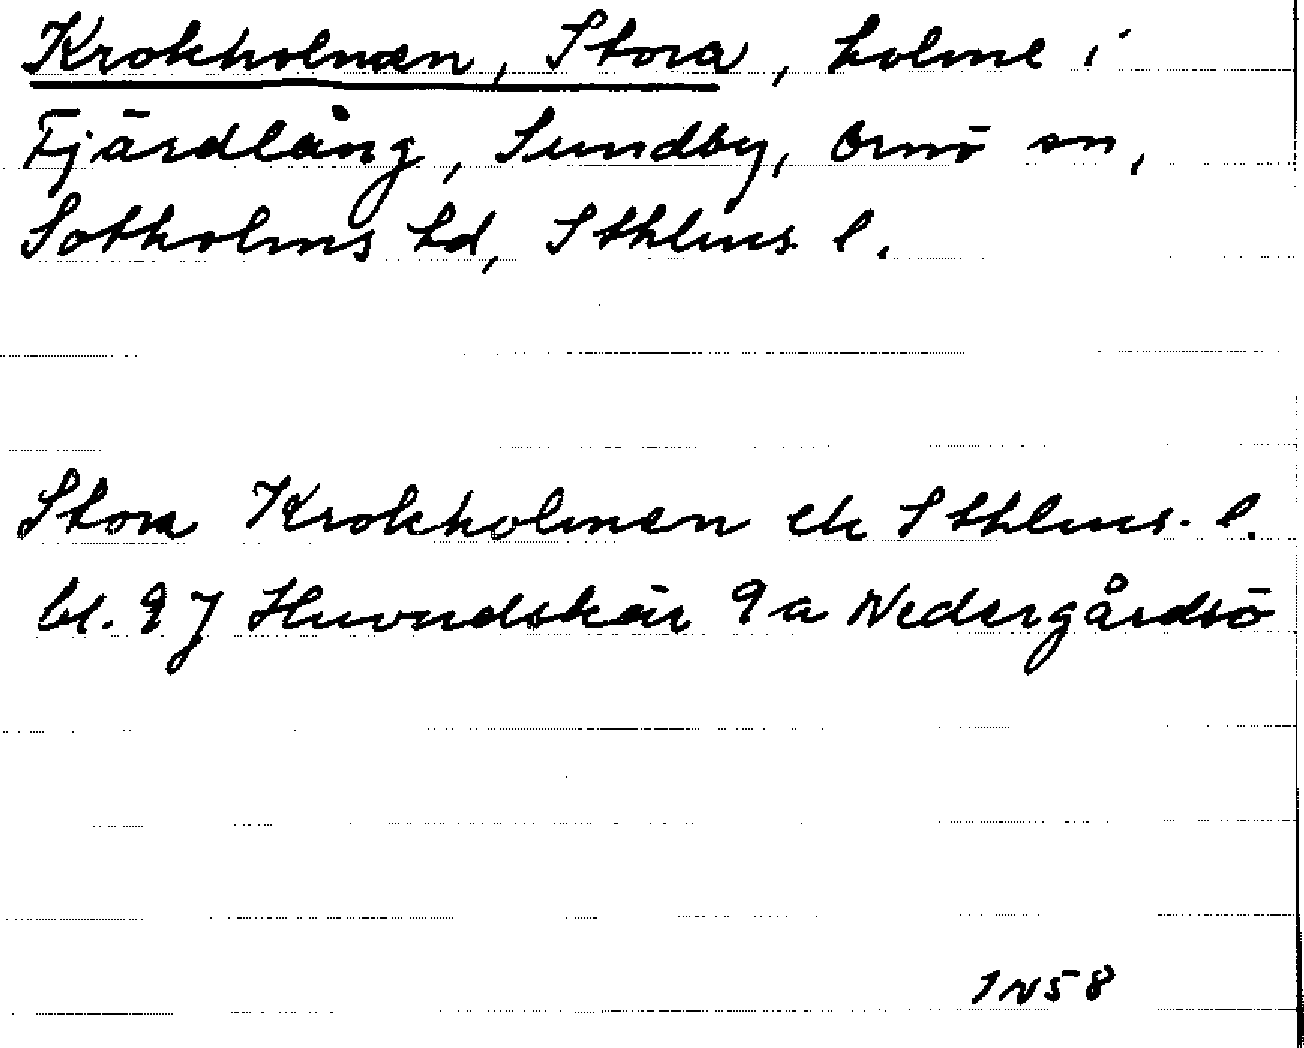 Krokholmen, Stora, holme i
Fjärdlång, Sundby, Ornö sn,
Sotholms hd, Sthlms l.
Stora Krokholmen ek Sthlms. l.
bl. 97 Huvudskär 9a Nedergårdsö
JN58